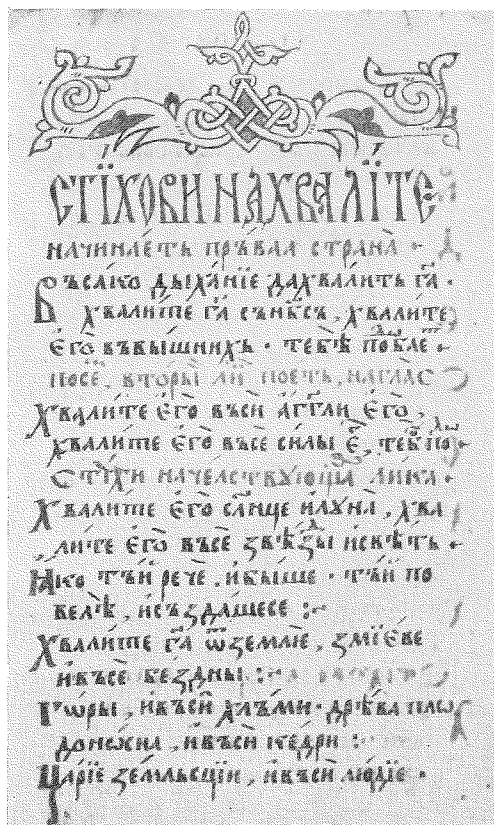 СТЇХОВИ НА ХВАЛЇТЕ
начина́еть пръваа страна̀ ·
В ъсако дыха́нїе да хвалить га҃ ·
хвали́те га҃ съ нб҃сь, хвали́те
ѐго̀ въ вы́шнихь · тебѣ̀ по́бае ·
посѐ, вторы̀ ли́ поеть, на гла́с
Хвали́те ѐго̀ въсѝ а҆гг҃ли ѐго̀,
хвали́те ѐго̀ въсѐ си́лы ѐ, теб по
Стїхи начелствующїа лика ·
Хвали́те ѐго̀ слн҃це и҆ луна̀, хва
лите ѐго̀ въсѐ ꙁвѣ́ꙁы и҆ свѣть ·
Ꙗко тъй речѐ, и҆ бы́ше · тъй по
велѣ̀, и҆ съꙁда́шесе :~
Хвали́те га҃ ѿ ꙁемлїѐ, ꙁмїе́ве
и҆ въсѐ бе́ꙁдны :~
Гѡ́ры, и҆ въсѝ хлъ́ми · дрѣ́ва пло
доно́сна, и҆ въсѝ ке́дри :
Ца́рїе ꙁе́мльсцїи, и҆ въсѝ лю́дїе ·